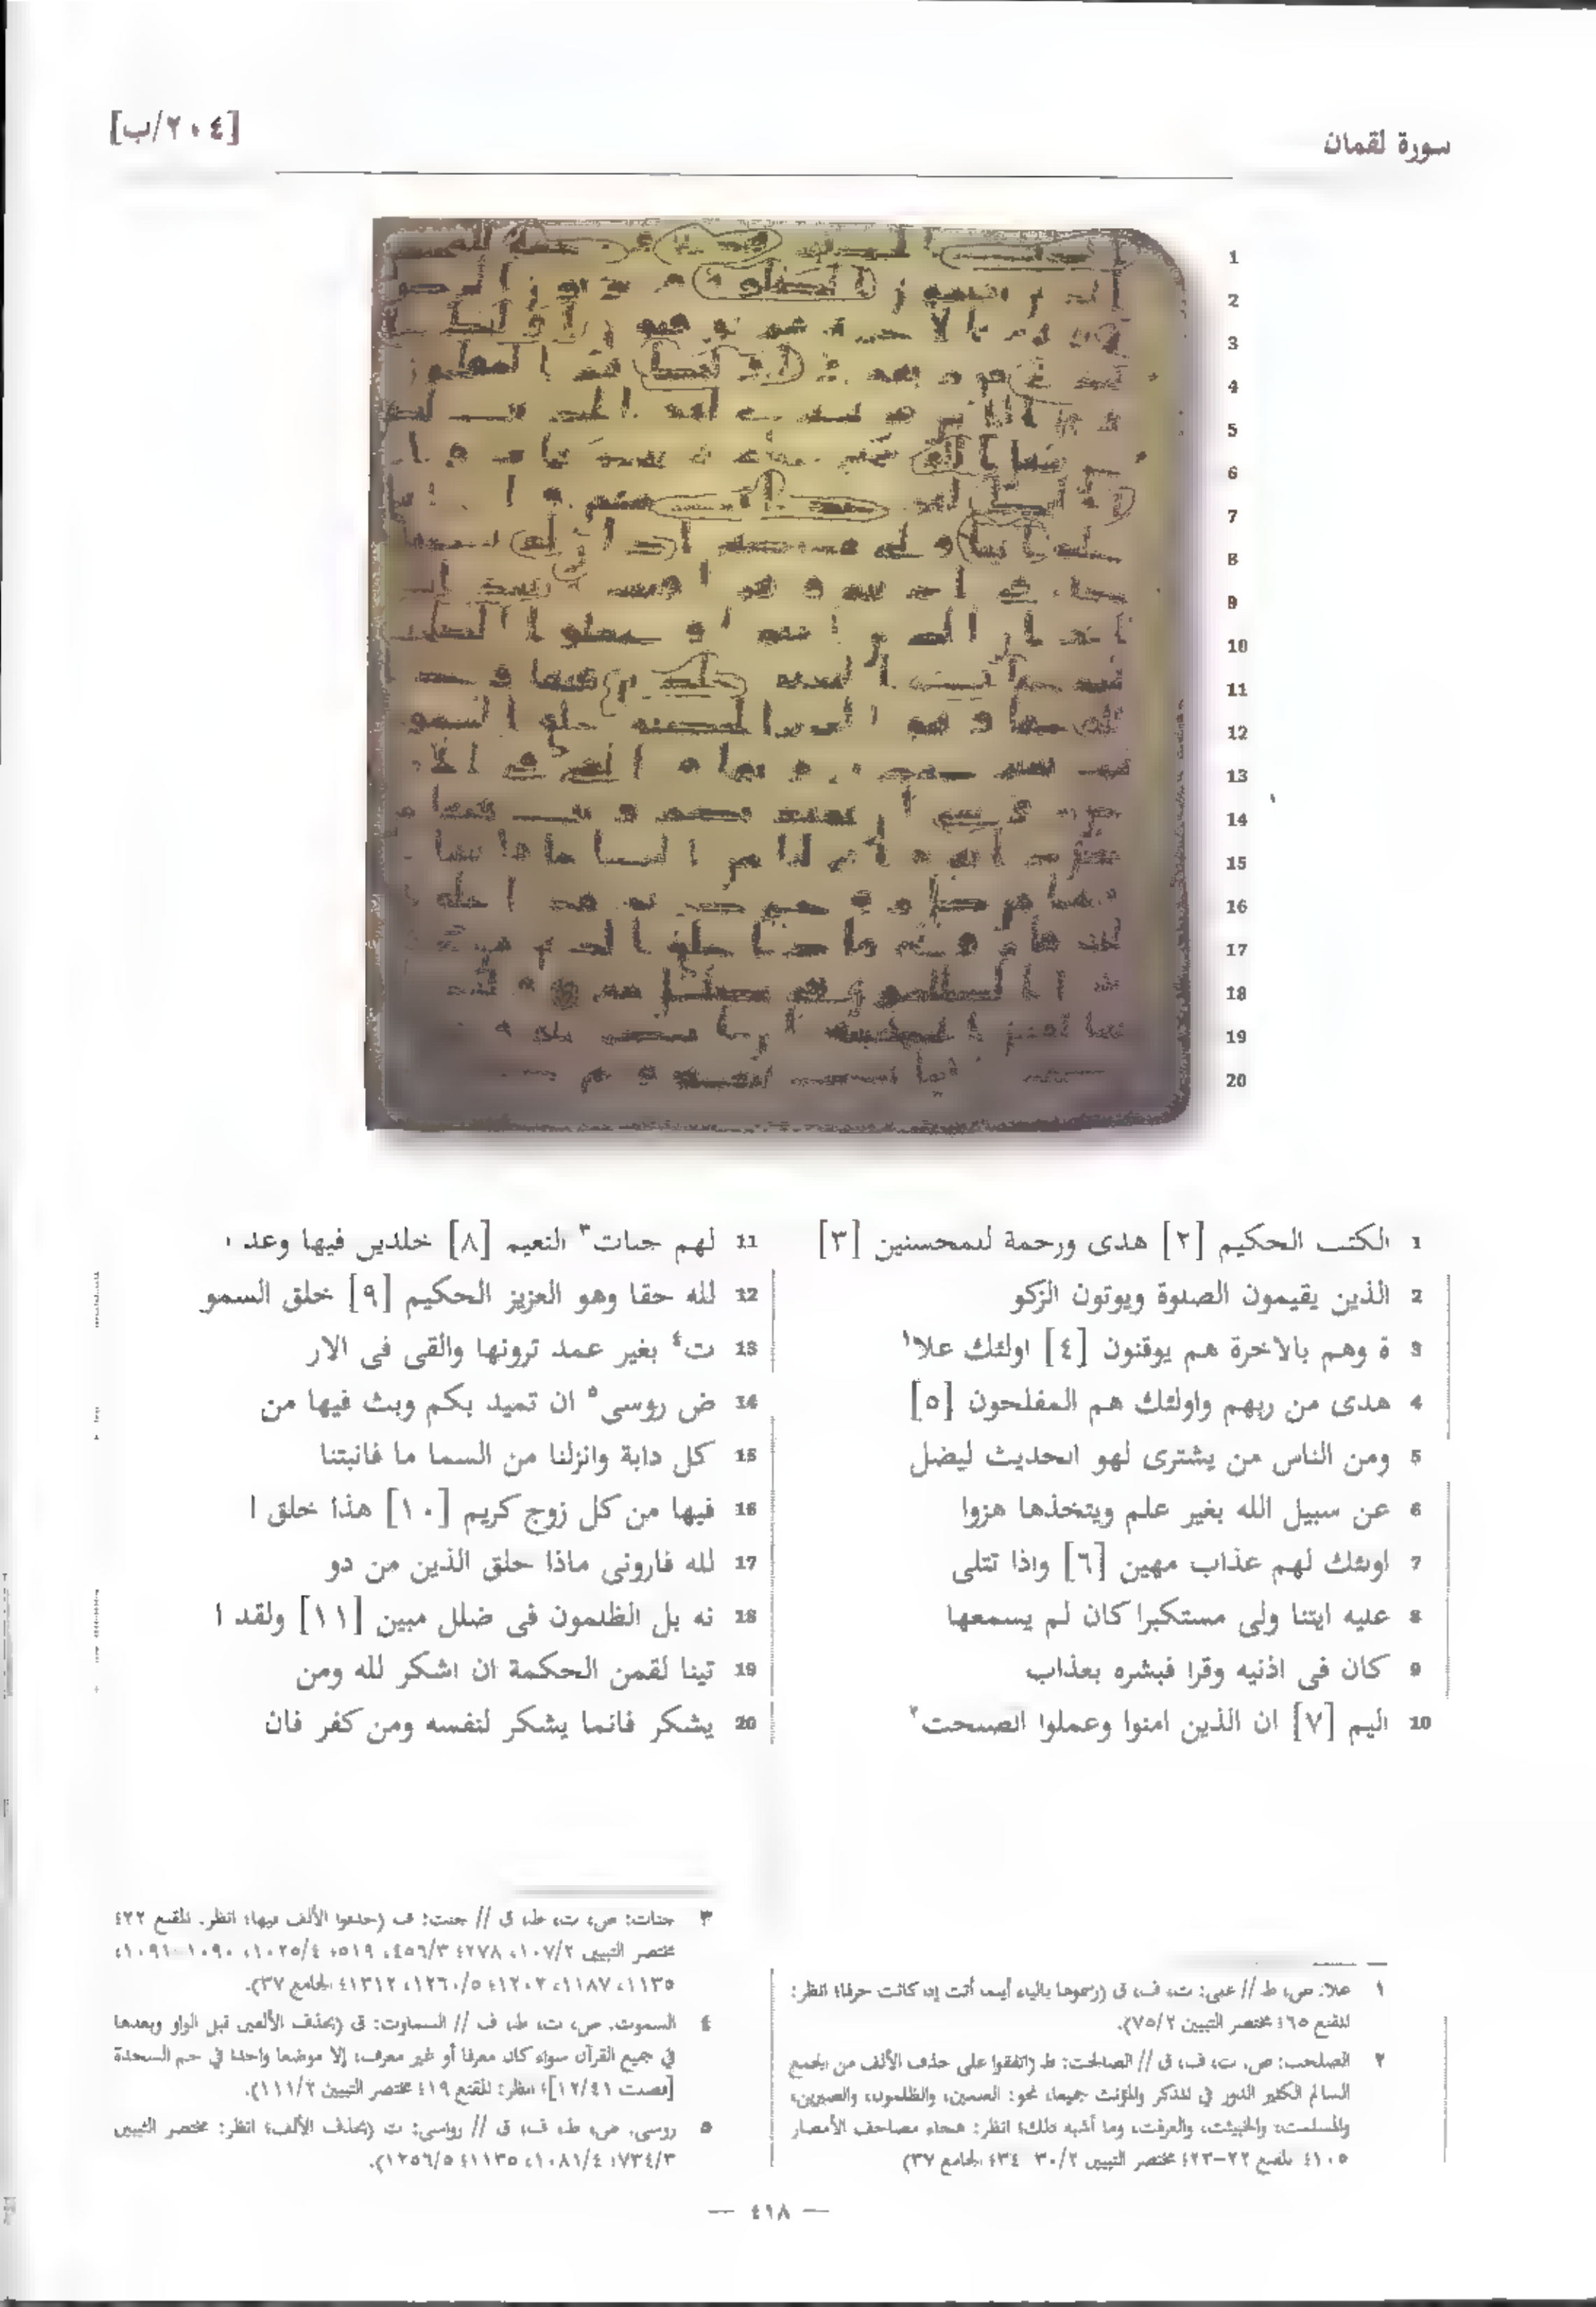 [٢٠٤/ب]
سورة لقمان
1
2
3
4
5
6
7
8
9
10
11
12
13
14
15
16
17
18
19
20
1 الكتب الحكيم [٢] هدى ورحمة للمحسنين [٣]
2 الذين يقيمون الصلوة ويوتون الزكو
3 ة وهم بالاخرة هم يوقنون [٤] اولئك علا١
4 هدى من ربهم واولئك هم المفلحون [٥]
5 ومن الناس من يشترى لهو الحديث ليضل
6 عن سبيل الله بغير علم ويتخذها هزوا
7 اولئك لهم عذاب مهين [٦] واذا تتلى
8 عليه ايتنا ولى مستكبرا كان لم يسمعها
9 كان فى اذنيه وقرا فبشره بعذاب
10 اليم [٧] ان الذين امنوا وعملوا الصلحت٢
11 لهم جنات٣ النعيم [٨] خلدين فيها وعد ا
12 لله حقا وهو العزيز الحكيم [٩] خلق السمو
13 ت٤ بغير عمد ترونها والقى فى الار
14 ض روسى٥ ان تميد بكم وبث فيها من
15 كل دابة وانزلنا من السما ما فانبتنا
16 فيها من كل زوج كريم [١٠] هذا خلق ا
17 لله فارونى ماذا خلق الذين من دو
18 نه بل الظلمون فى ضلل مبين [١١] ولقد ا
19 تينا لقمن الحكمة ان اشكر لله ومن
20 يشكر فانما يشكر لنفسه ومن كفر فان
١ علا: ص، ط // على: ت، ف، ق (رسموها بالياء أينما أتت إذا كانت حرفا؛ انظر:
المقنع ٤٦٥ مختصر التبيين ٧٥/٢).
٢ الصلحت: ص، ت، ف، ق // الصالحت: ط (اتفقوا على حذف الألف من الجمع
السالم الكثير الدور في المذكر والمؤنث جميعا، نحو: العلمين، والظلمون، والصبرين،
والمسلمت، والخبيثت، والغرفت، وما أشبه ذلك؛ انظر: هجاء مصاحف الأمصار
١٠٥؛ المقنع ٢٢-٢٣؛ مختصر التبيين ٣٠/٢ ٣٤؛ الجامع ٣٧)
٣ جنات: ص، ت، ط، ق // جنت: ف (حذفوا الألف فيها؛ انظر: المقنع ٢٢؛
مختصر التبيين ١٠٧/٢، ٢٧٨؛ ٤٥٦/٣، ٥١٩؛ ١٠٢٥/٤، ١٠٩٠-١٠٩١،
١١٣٥، ١١٨٧، ١٢٠٢؛ ١٢٦٠/٥، ١٣١٢؛ الجامع ٣٧).
٤ السموت: ص، ت، ط، ف // السماوت: ق (بحذف الألفين قبل الواو وبعدها
في جميع القرآن سواء كان معرفا أو غير معرف، إلا موضعا واحدا في حم السجدة
[فصلت ١٢/٤١]؛ انظر: المقنع ١٩؛ مختصر التبيين ١١١/٢).
٥ روسى: ص، ط، ف، ق // رواسى: ت (بحذف الألف؛ انظر: مختصر التبيين
٧٣٤/٣؛ ١٠٨١/٤، ١١٣٥؛ ١٢٥٦/٥).
— ٤١٨ —